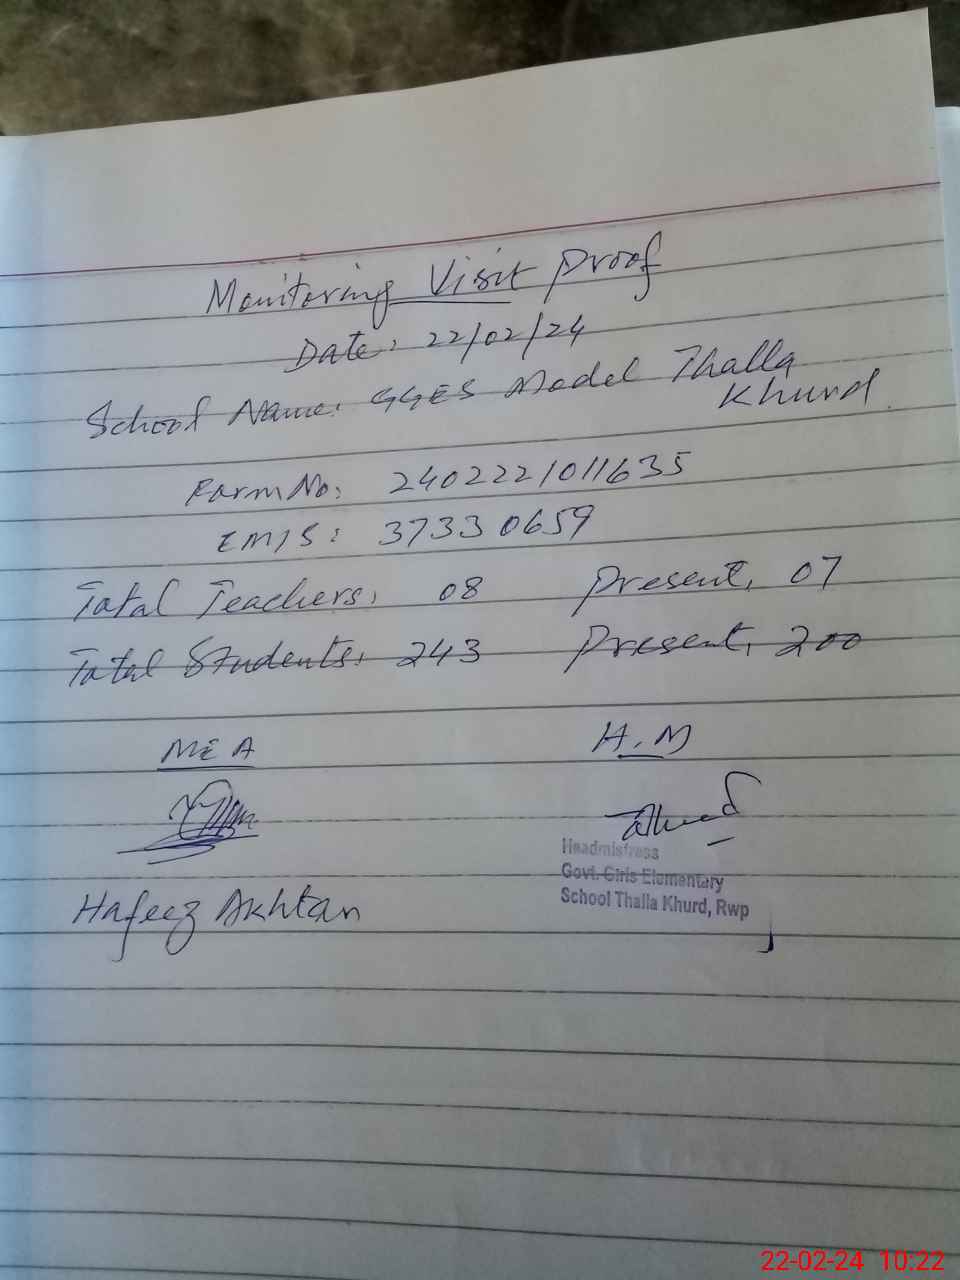 Monitoring Visit Proof
Date: 22/02/24
School Name: GGES Model Thalla
Khurd.
Farm No: 2402221011635
EMIS: 37330659
Total Teachers: 08 Present: 07
Total Students: 243 Present: 200
MEA H.M
Headmistress
Govt. Girls Elementary
School Thalla Khurd, Rwp
Hafeez Akhtar
22-02-24 10:22